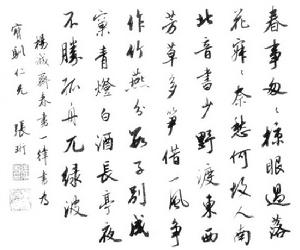 春事匆匆掠眼過落
花寂寂奈愁何故人南
北音書少野渡東西
芳草多笋借一風争
作竹燕分數子別成
窠青燈白酒長亭夜
不勝孤舟兀緑波
楊誠齋春盡一律書為
仁兄 張珩